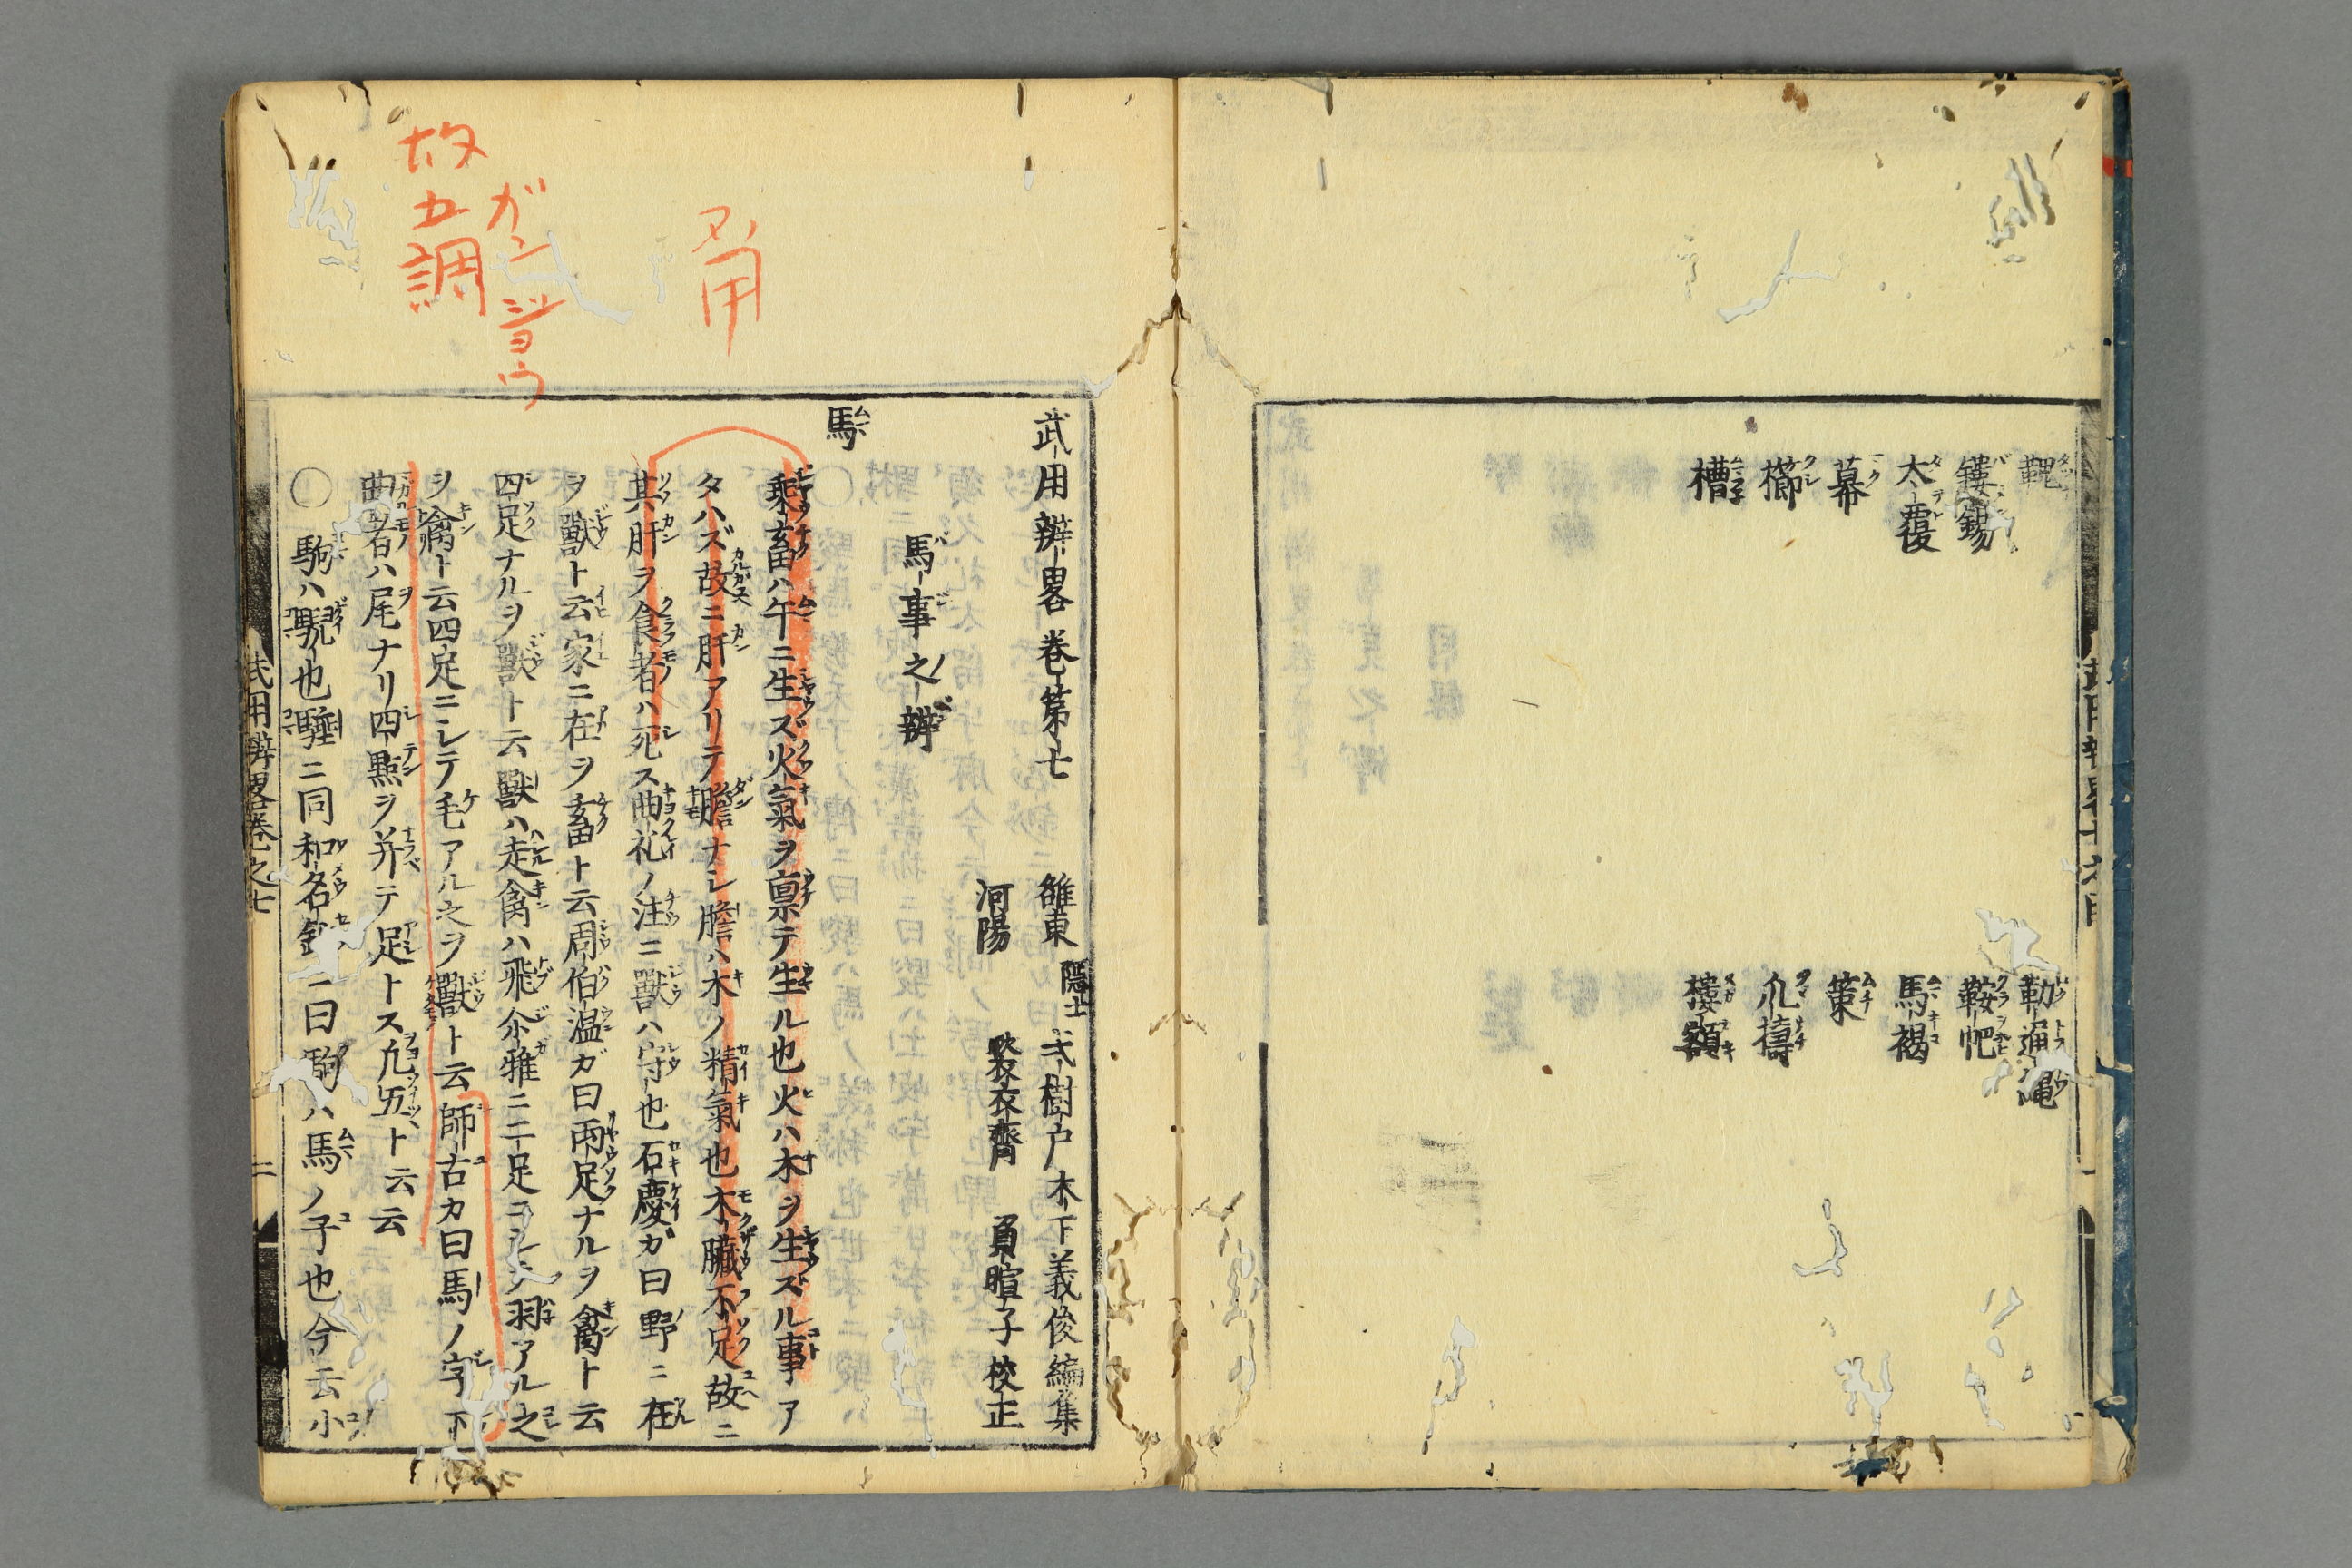 鏤錫
太覆
幕
櫛
槽
勒通縄
鞍帊
馬褐
策
爪擣
武用辨畧巻第七
雒東隱士弌樹戸木下義俊編集
河陽 褧衣齊 負暄子校正
馬事之辨
馬
乘畜ハ午ニ生ズ火氣ヲ禀テ生ル也火ハ木ヲ生ズル事ア
タハズ故ニ肝アリテ膽ナシ膽ハ木ノ精氣也木臟不足故ニ
其肝ヲ食者ハ死ス曲礼ノ注ニ獸ハ守也石慶カ曰野ニ在
ヲ獸ト云家ニ在ヲ畜ト云周伯温ガ曰兩足ナルヲ禽ト云
四足ナルヲ獸ト云獸ハ走禽ハ飛尒雅ニ二足ニシテ羽アル之
ヲ禽ト云四足ニシテ毛アル之ヲ獸ト云師古カ曰馬ノ字下
曲者ハ尾ナリ四點ヲ并テ足トス凢五ト云云
○駒ハ驪也騲ニ同和名鈔ニ曰駒ハ馬ノ子也今云小
武用辨畧巻之七 二
故五調